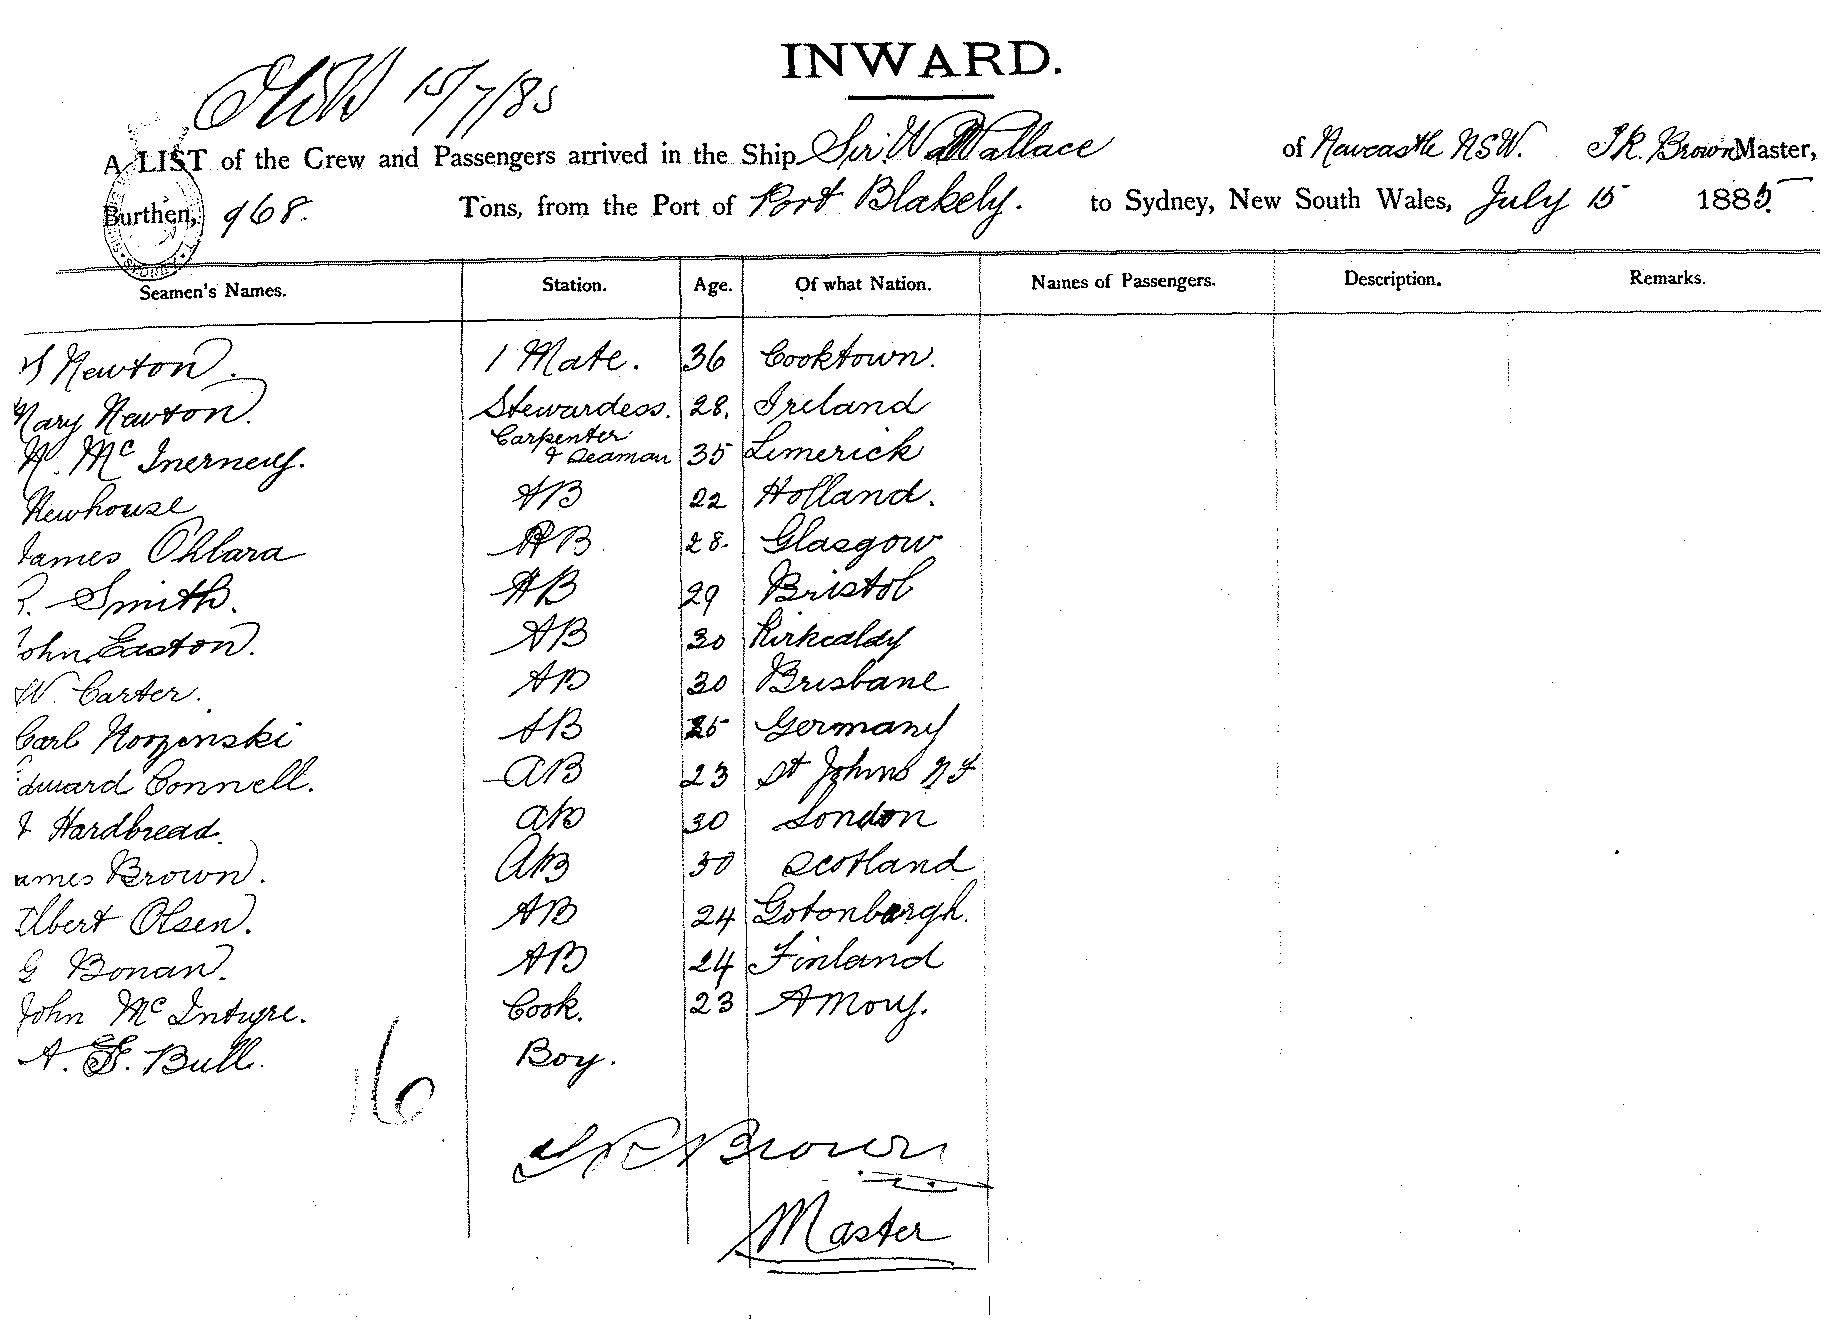 INWARD.
15/7/85
A LIST of the Crew and Passengers arrived in the Ship Sir W Wallace of Newcastle NSW. J R. Brown Master,
Burthen, 968. Tons, from the Port of Port Blakely. to Sydney, New South Wales, July 15 1885.
Seamen's Names. Station. Age. Of what Nation. Names of Passengers. Description. Remarks.
Newton. 1 Mate. 36 Cooktown.
Mary Newton. Stewardess. 28. Ireland
Carpenter
N. Mc Inerney. & Seaman 35 Limerick
Newhouse AB 22 Holland.
James OHara AB 28. Glasgow
Smith. AB 29 Bristol
John Easton. AB 30 Kirkcaldy
W. Carter. AB 30 Brisbane
Carl AB 25 Germany
Edward Connell. AB 23 St Johns NF
Hardbread. AB 30 London
James Brown. AB 30 Scotland
Albert Olsen. AB 24 Gotonbargh.
G Bonan. AB 24 Finland
John Mc Intyre. Cook. 23 Amoy.
A. F. Bull. Boy.
16
J R Brown
Master